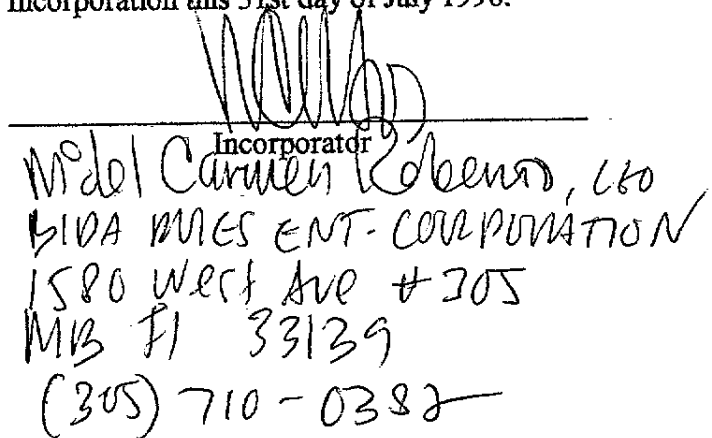 incorporation this 31st day of July 1998.
Incorporator
Mª del Carmen Roberts, CEO
BIDA ENT. CORPORATION
1580 West Ave # 305
MB Fl 33139
(305) 710-0382